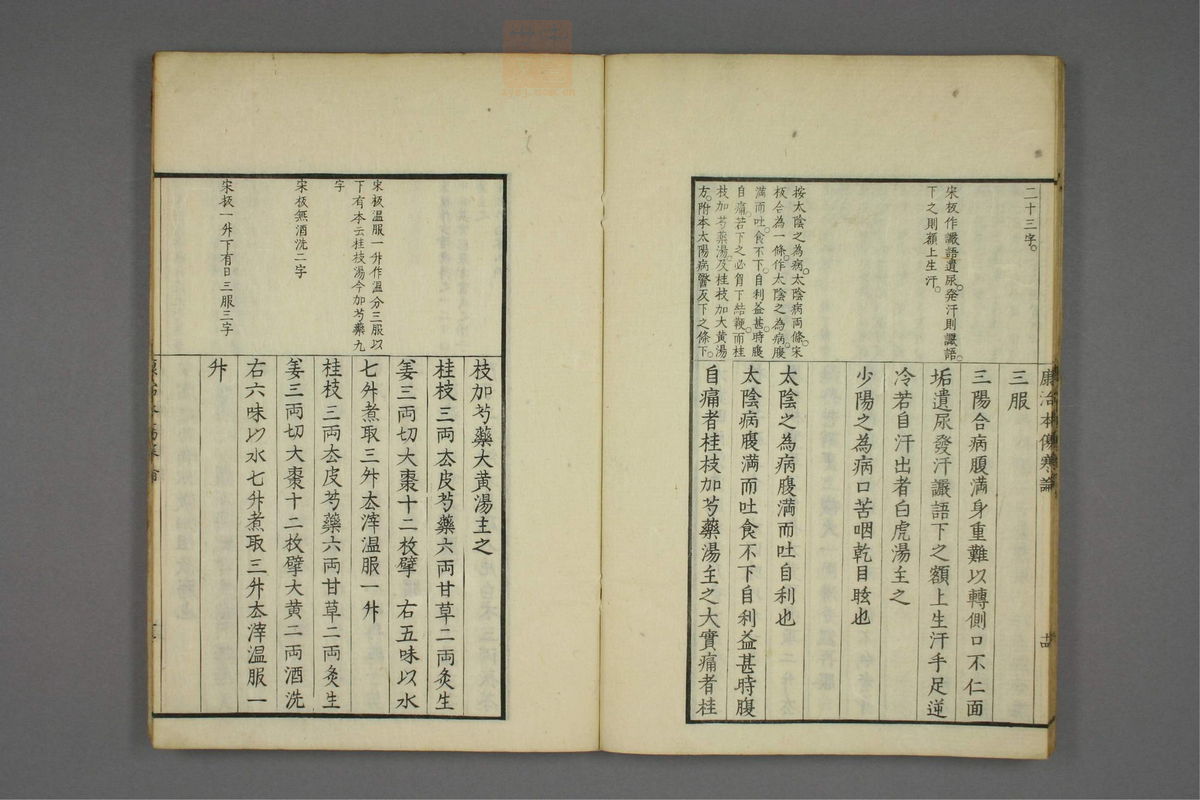 康治本傷寒論
二十三字。
宋板作讝語遺尿。發汗則讝語。
下之則額上生汗。
按太陰之為病。太陰病両條。宋
板合為一條。作太陰之為病腹
満而吐。食不下。自利益甚。時腹
自痛。若下之必胷下結鞕。而桂
枝加芍藥湯。及桂枝加大黄湯
方。附本太陽病醫反下之條下。
三服
三陽合病腹満身重難以轉側口不仁面
垢遺尿發汗讝語下之額上生汗手足逆
冷若自汗出者白虎湯主之
少陽之為病口苦咽乾目眩也
太陰之為病腹満而吐自利也
太陰病腹満而吐食不下自利益甚時腹
自痛者桂枝加芍藥湯主之大實痛者桂
宋板温服一舛作温分三服以
下有本云桂枝湯今加芍藥九
字
宋板無酒洗二字
宋板一舛下有日三服三字
枝加芍藥大黄湯主之
桂枝三両厺皮芍藥六両甘草二両灸生
姜三両切大棗十二枚擘 右五味以水
七舛煮取三舛厺滓温服一舛
桂枝三両厺皮芍藥六両甘草二両灸生
姜三両切大棗十二枚擘大黄二両酒洗
右六味以水七舛煮取三舛厺滓温服一
舛